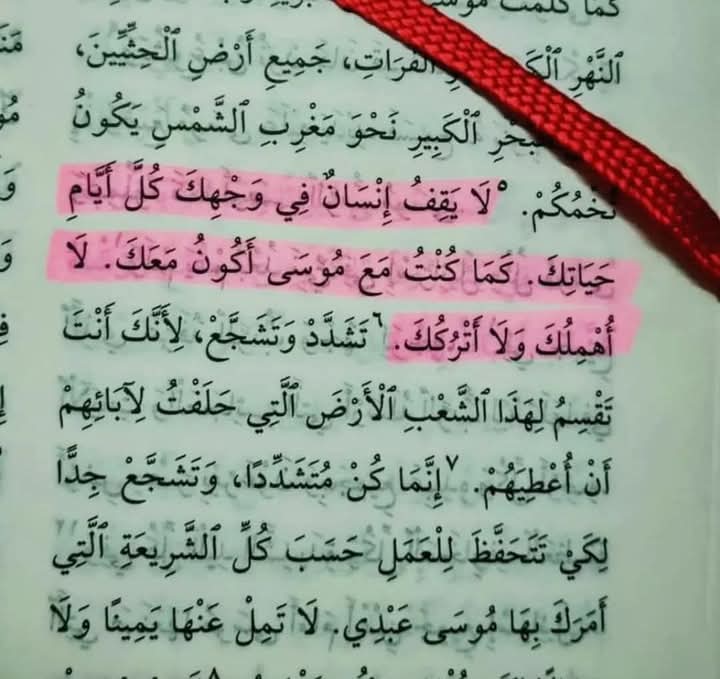 كَمَا كَلَّمْتُ مُوسَى
ٱلنَّهْرِ ٱلْكَبِيرِ ٱلْفُرَاتِ، جَمِيعِ أَرْضِ ٱلْحِثِّيِّينَ،
ٱلْكَبِيرِ نَحْوَ مَغْرِبِ ٱلشَّمْسِ يَكُونُ
تُخْمُكُمْ. ٥ لَا يَقِفُ إِنْسَانٌ فِي وَجْهِكَ كُلَّ أَيَّامِ
حَيَاتِكَ. كَمَا كُنْتُ مَعَ مُوسَى أَكُونُ مَعَكَ. لَا
أُهْمِلُكَ وَلَا أَتْرُكُكَ. ٦ تَشَدَّدْ وَتَشَجَّعْ، لِأَنَّكَ أَنْتَ
تَقْسِمُ لِهَذَا ٱلشَّعْبِ ٱلْأَرْضَ ٱلَّتِي حَلَفْتُ لِآبَائِهِمْ
أَنْ أُعْطِيَهُمْ. ٧ إِنَّمَا كُنْ مُتَشَدِّدًا، وَتَشَجَّعْ جِدًّا
لِكَيْ تَتَحَفَّظَ لِلْعَمَلِ حَسَبَ كُلِّ ٱلشَّرِيعَةِ ٱلَّتِي
أَمَرَكَ بِهَا مُوسَى عَبْدِي. لَا تَمِلْ عَنْهَا يَمِينًا وَلَا